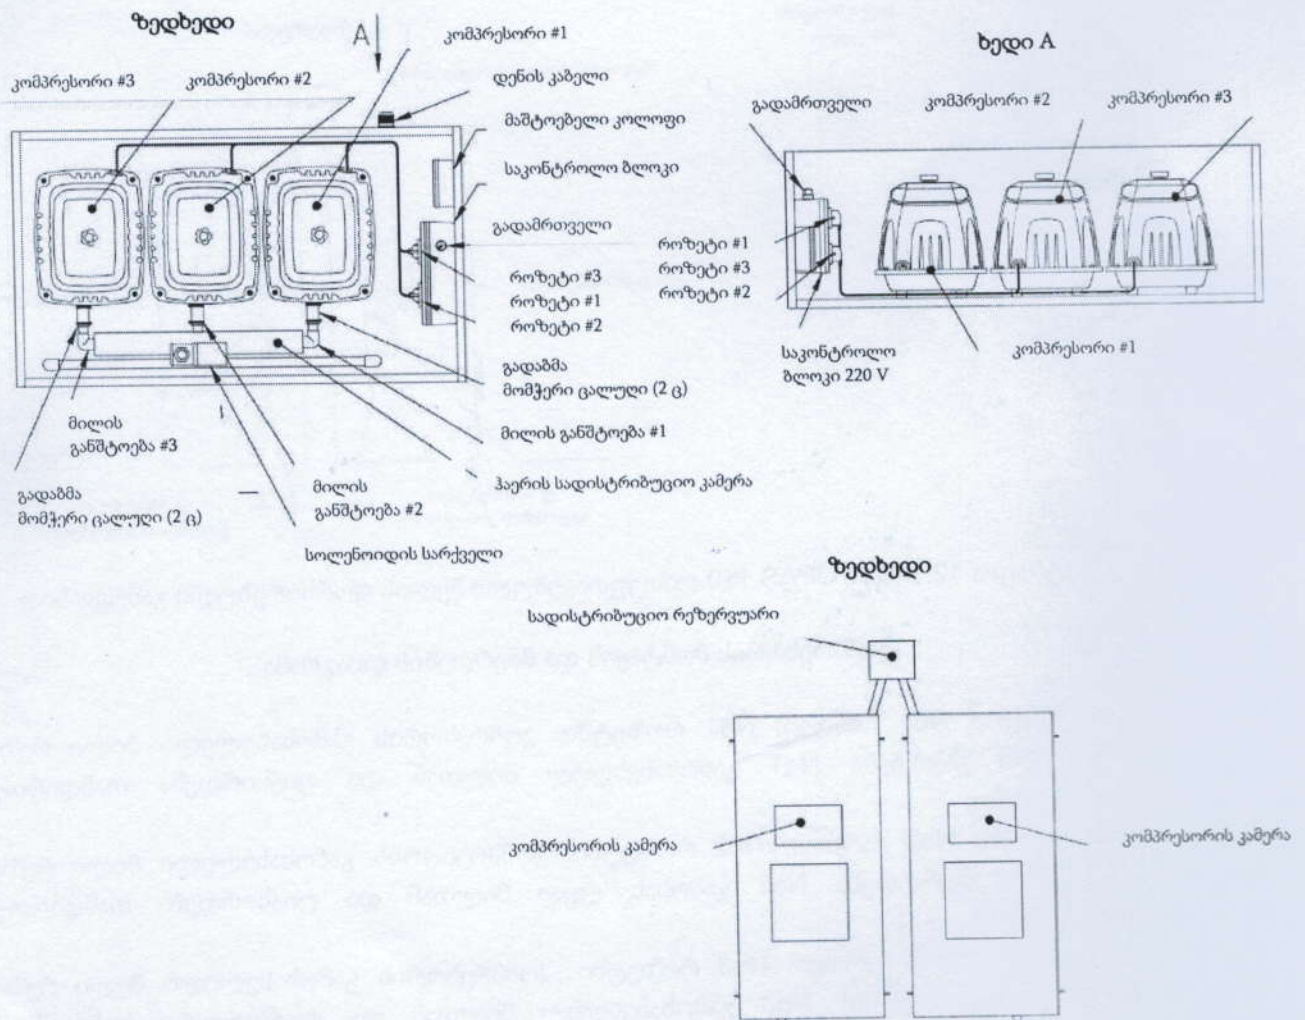 ზედხედი
A
კომპრესორი #1
კომპრესორი #3
კომპრესორი #2
დენის კაბელი
მაშტოებელი კოლოფი
საკონტროლო ბლოკი
გადამრთველი
როზეტი #3
როზეტი #1
როზეტი #2
გადაბმა
მომჭერი ცალუღი (2 ც)
მილის განშტოება #1
ჰაერის სადისტრიბუციო კამერა
მილის
განშტოება #3
გადაბმა
მომჭერი ცალუღი (2 ც)
მილის
განშტოება #2
სოლენოიდის სარქველი
ხედი A
გადამრთველი
კომპრესორი #2
კომპრესორი #3
როზეტი #1
როზეტი #3
როზეტი #2
საკონტროლო
ბლოკი 220 V
კომპრესორი #1
ზედხედი
სადისტრიბუციო რეზერვუარი
კომპრესორის კამერა
კომპრესორის კამერა